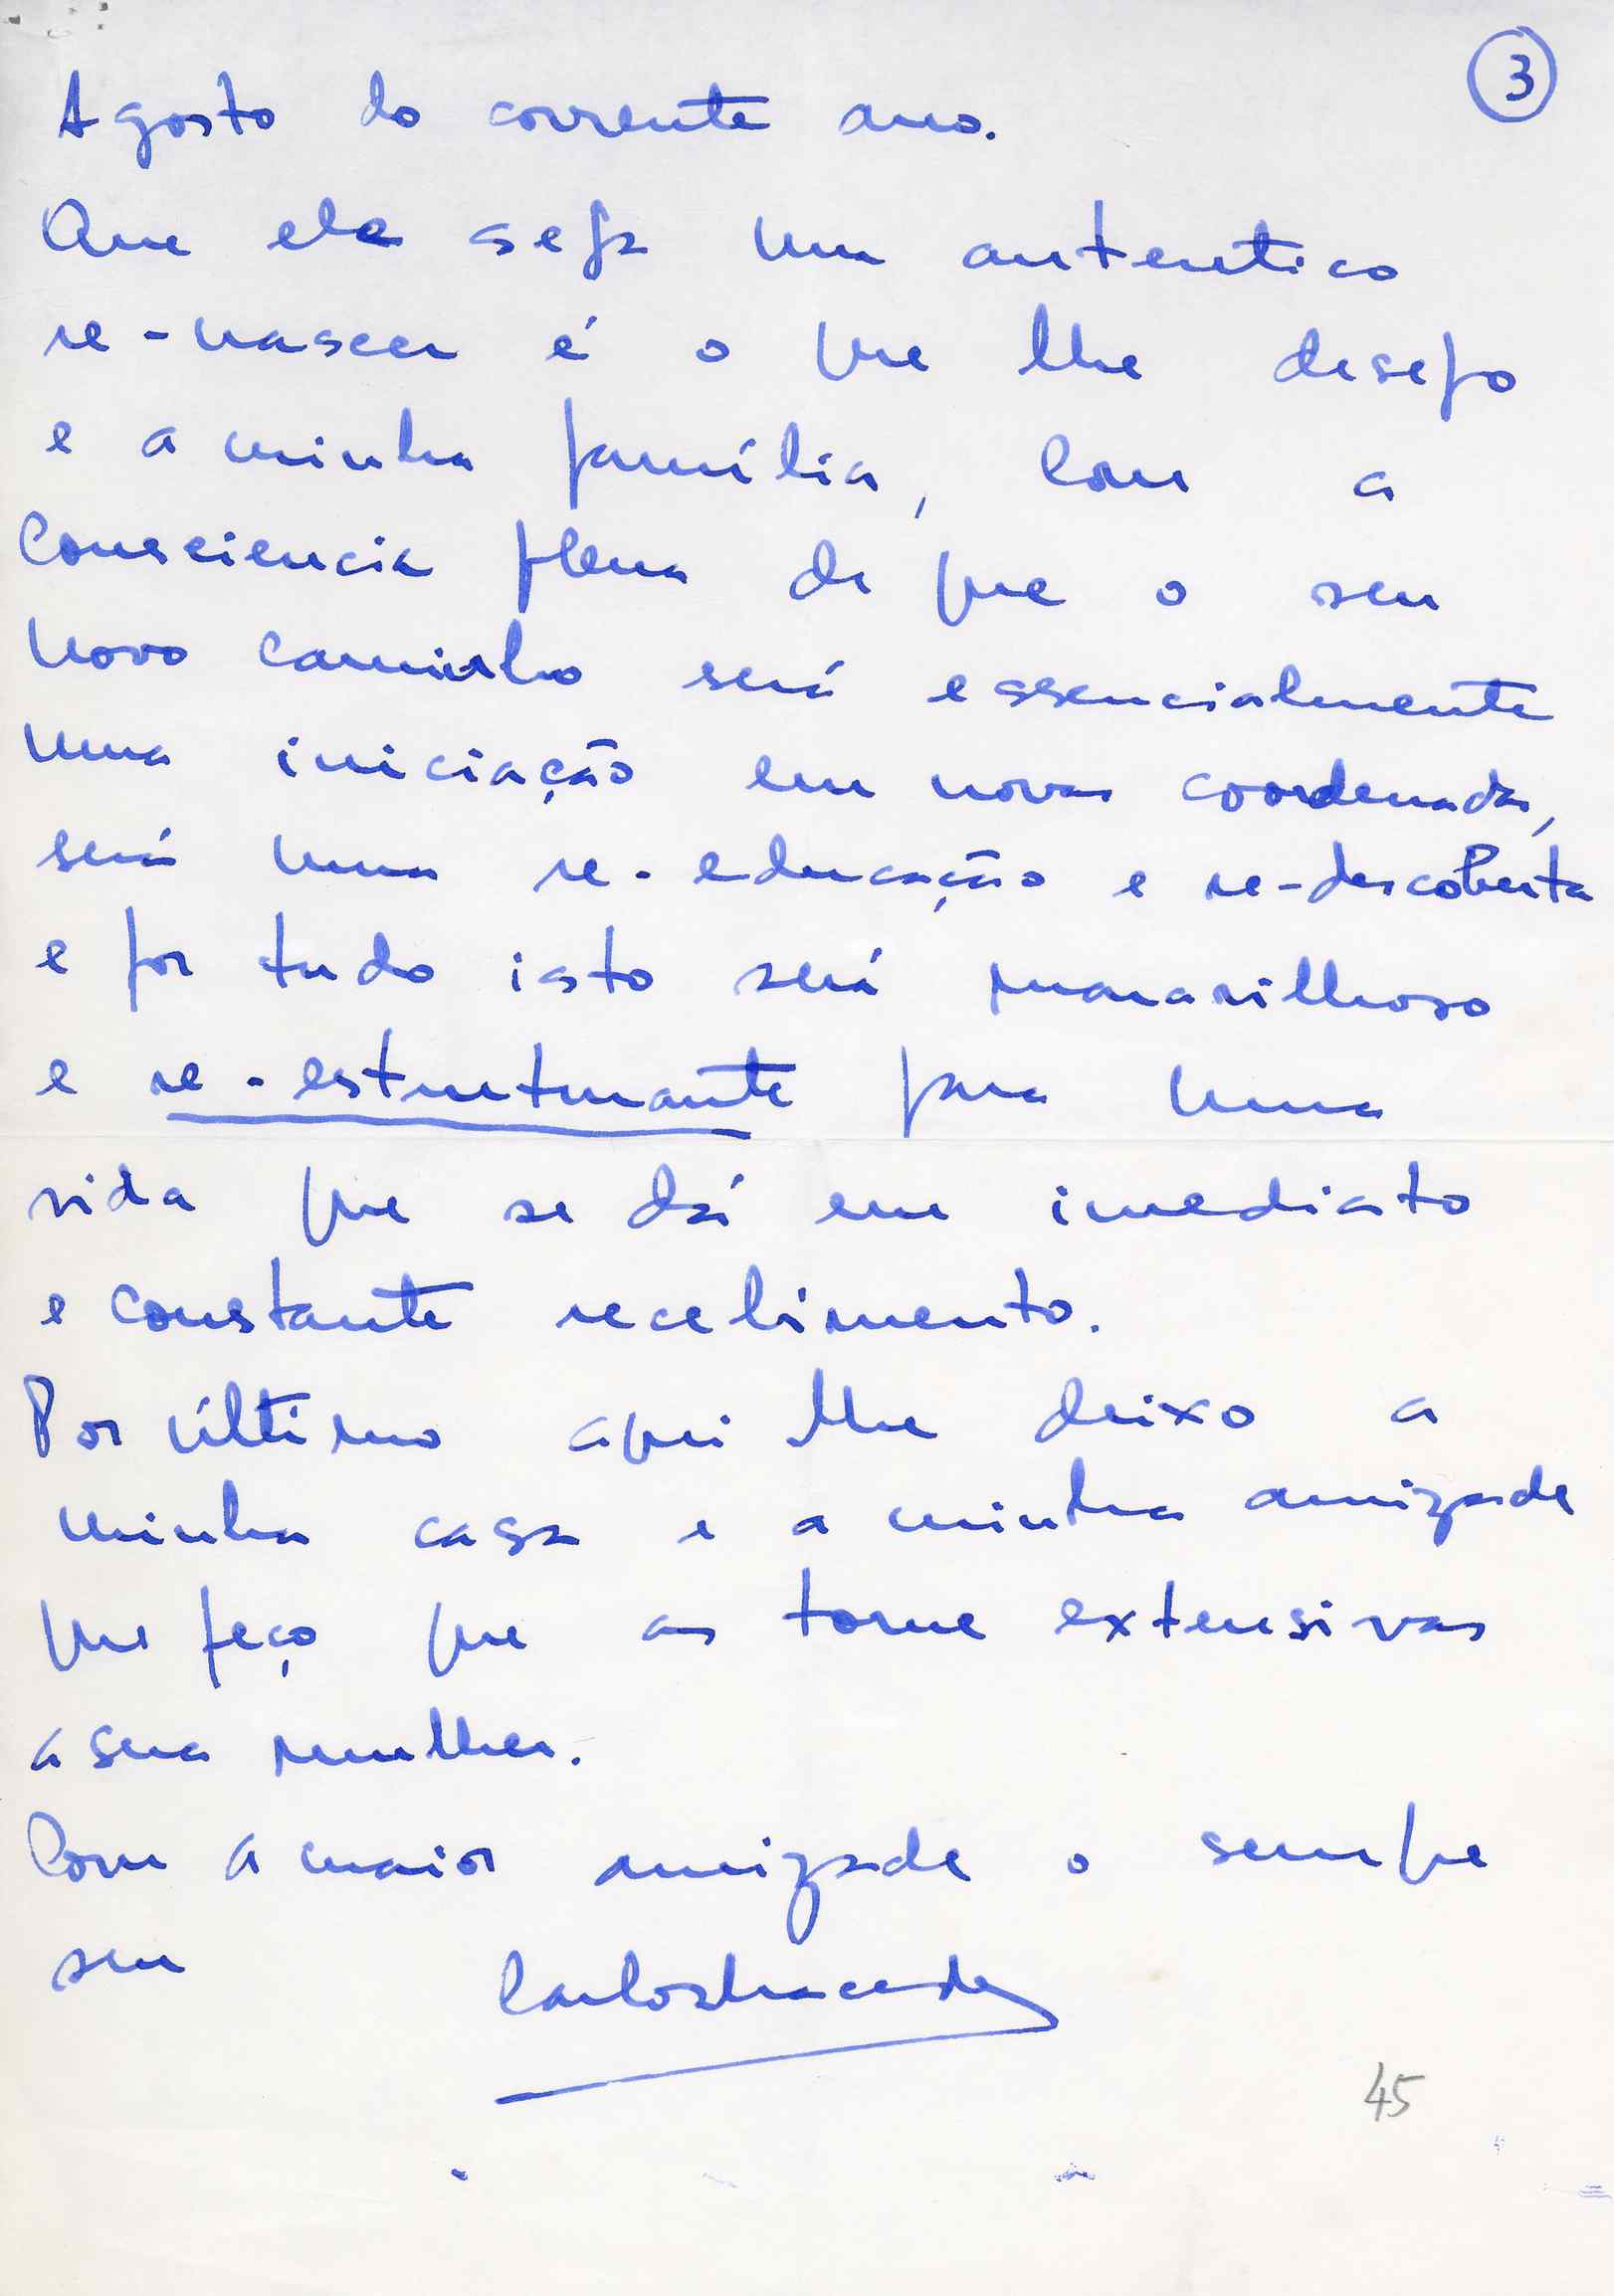 3
Agosto do corrente ano.
Que ele seja um autentico
re-nascer é o que lhe desejo
e a minha família, com a
consciencia plena de que o seu
novo caminho será essencialmente
uma iniciação em novas coordenadas,
será uma re-educação e re-descoberta
e por tudo isto será maravilhoso
e re-estruturante para uma
vida que se dá em imediato
e constante recebimento.
Por último aqui lhe deixo a
minha casa e a minha amizade
que peço que as torne extensivas
a sua mulher.
Com a maior amizade o sempre
seu
45